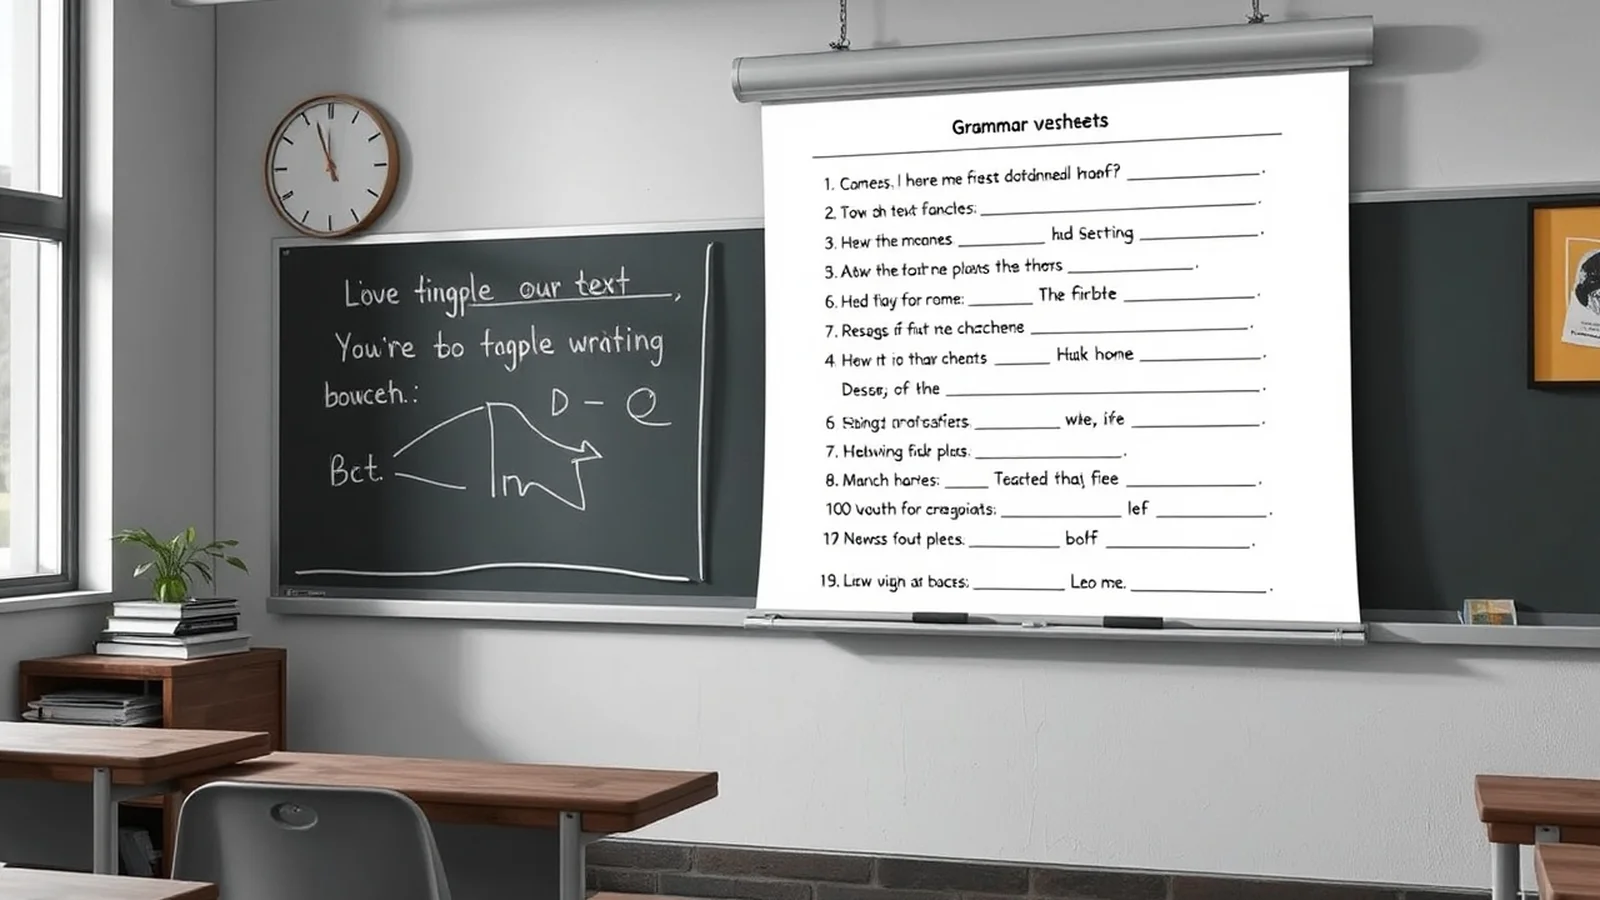 Love tingple our text,
You're to fagple writing
bowceh.:
D - Q
Bct.
Grammar vesheets
1. Comees, I here me fiest dotdnnedl honf?
2. Tow oh text fancles:
3. Hew the mcanes hud Setting
3. Aow the fort ne plans the thors
6. Hed flay for rome: The firbte
7. Resogs if fiut ne chachene
4 How it io thar chents Huuk home
Desse, of the
6 wle, ife
7. Helwing fide plets.
8. Manch hartes: Teacted thaj fiee
100 vouth for cragoiats: lef
17 Newss fout plecs. botf
19. Liew vign at bocrs: Leo me.